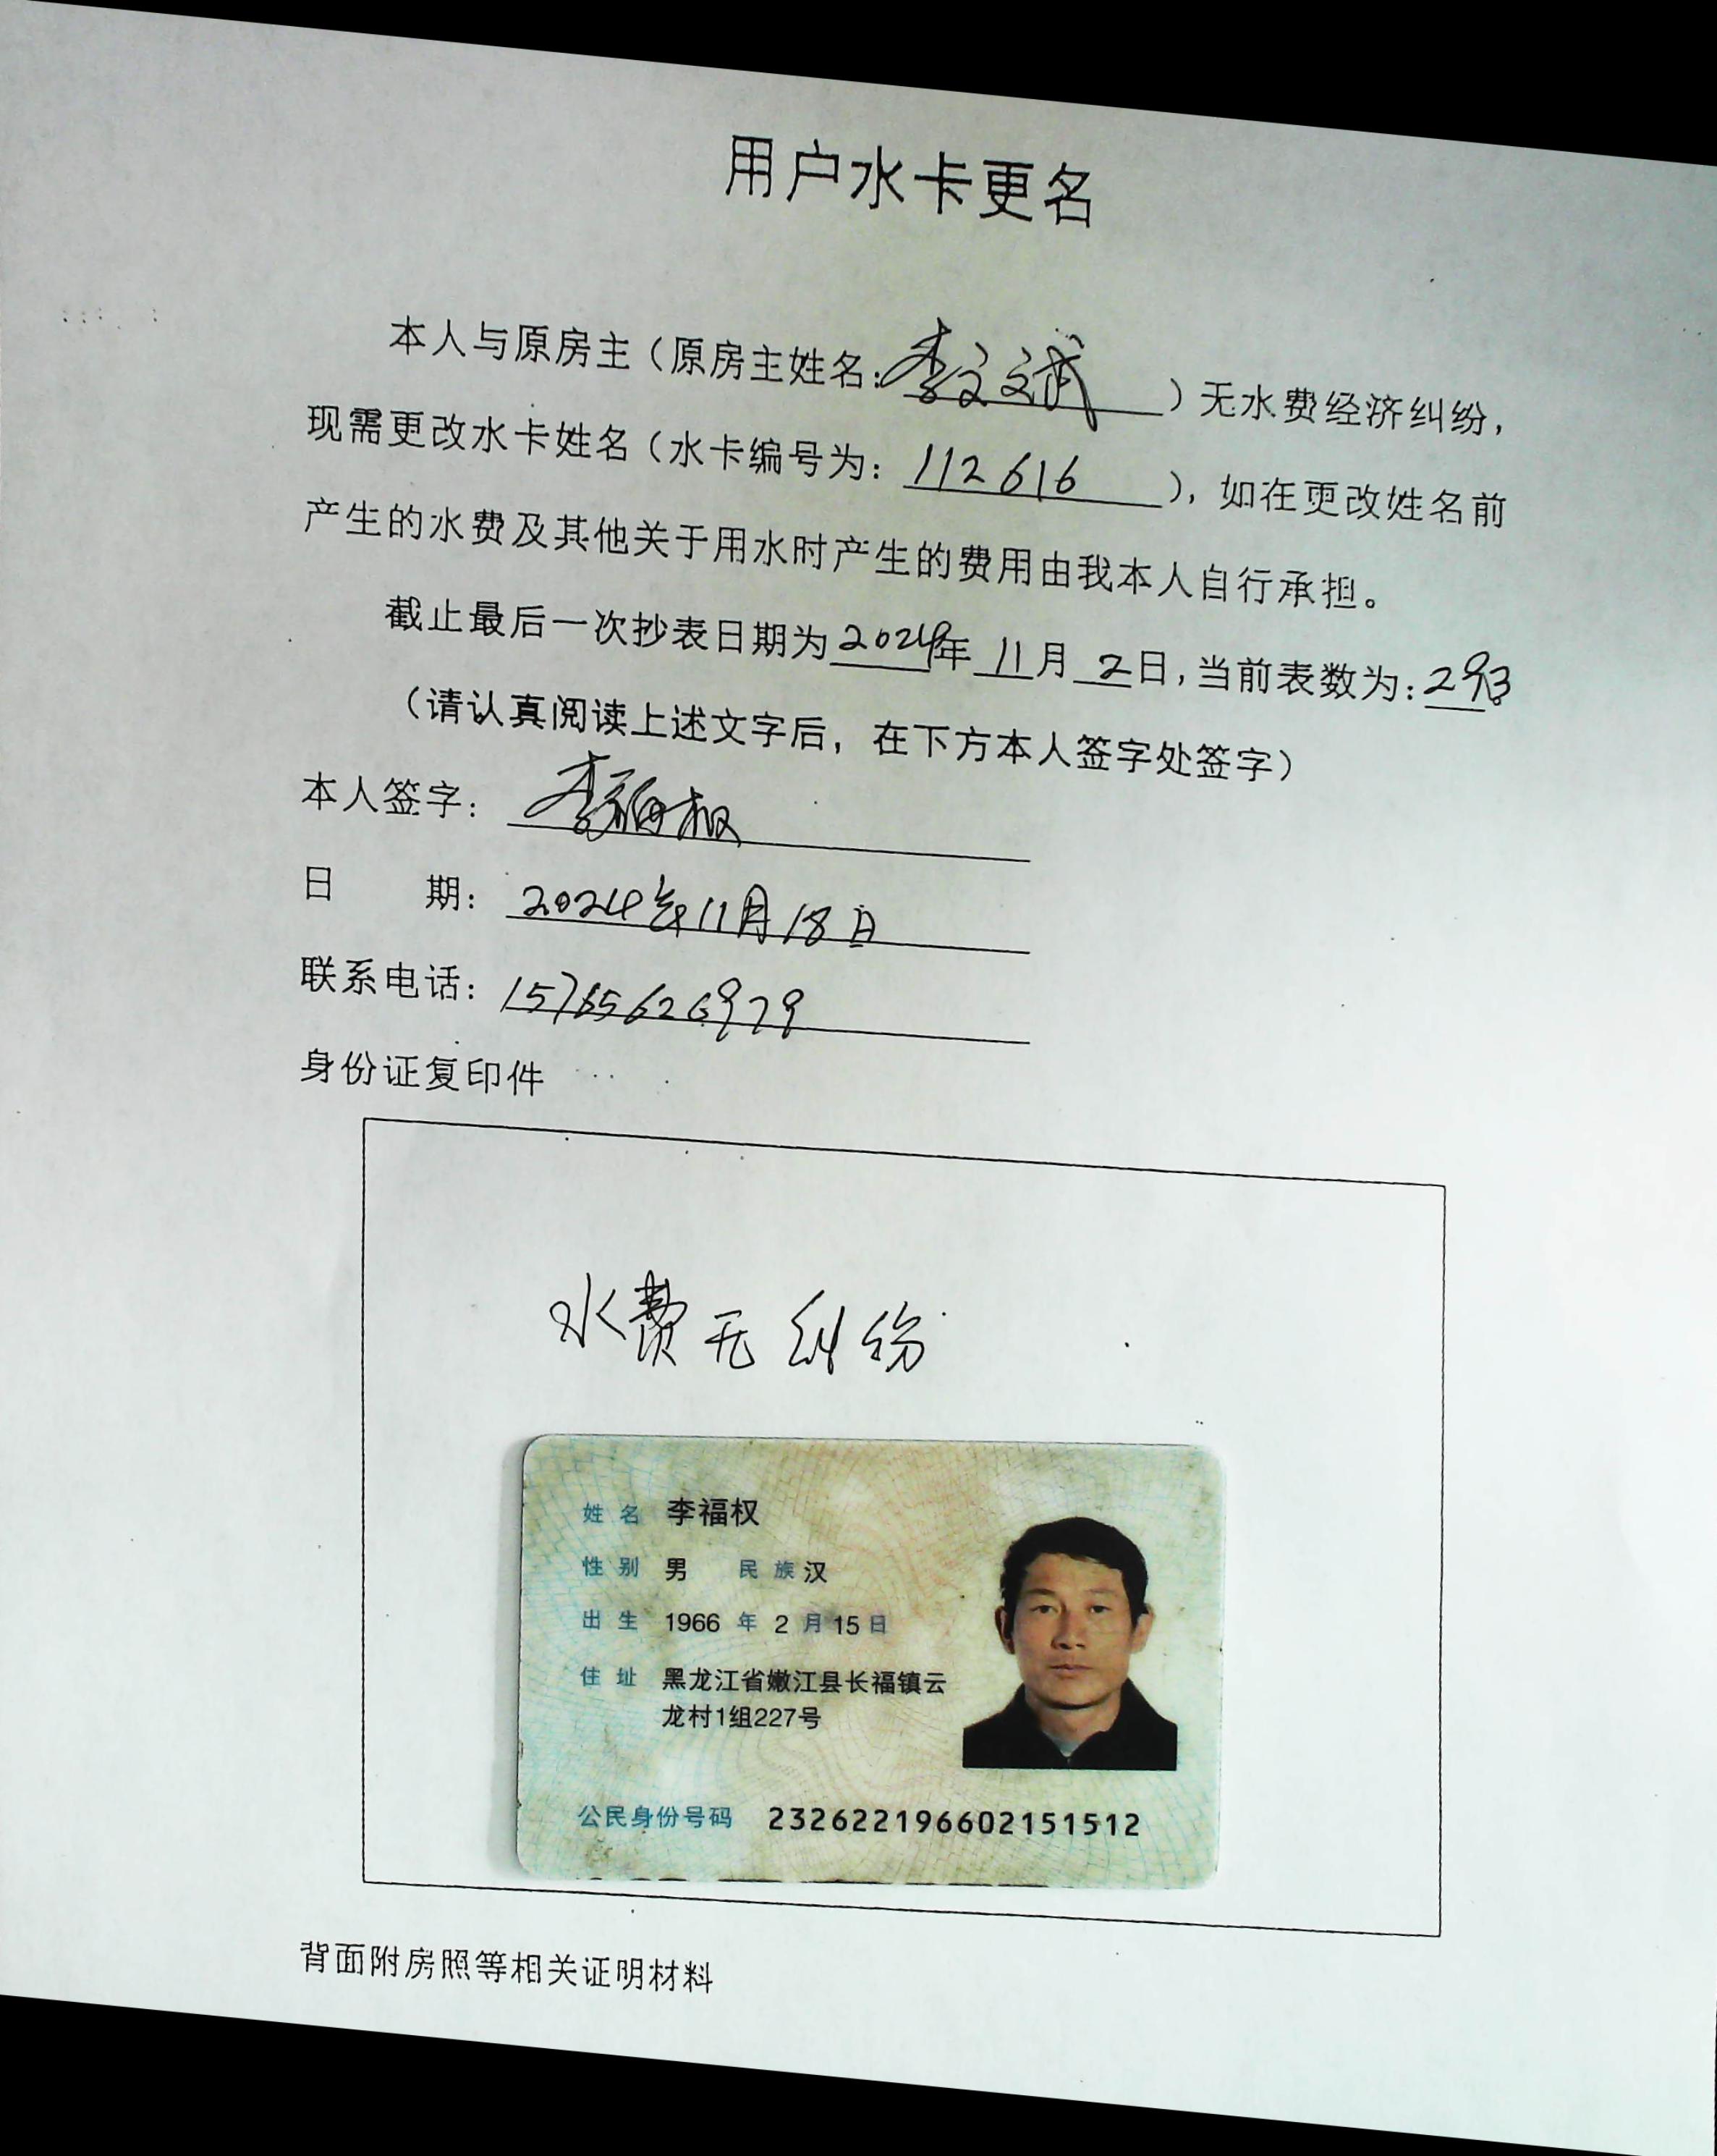 用户水卡更名
本人与原房主（原房主姓名：李文斌）无水费经济纠纷，
现需更改水卡姓名（水卡编号为：112616），如在更改姓名前
产生的水费及其他关于用水时产生的费用由我本人自行承担。
截止最后一次抄表日期为2024年11月2日，当前表数为：293
（请认真阅读上述文字后，在下方本人签字处签字）
本人签字：李福权
日 期：2024年11月18日
联系电话：15765626979
身份证复印件
水费无纠纷
姓名 李福权
性别 男 民族 汉
出生 1966年2月15日
住址 黑龙江省嫩江县长福镇云
龙村1组227号
公民身份号码 232622196602151512
背面附房照等相关证明材料